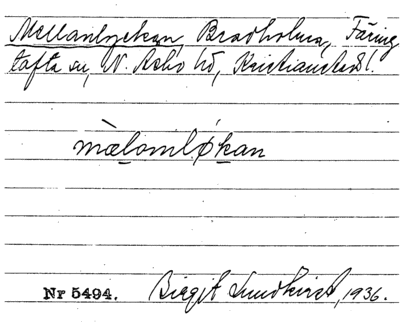 Mellanlyckan, Bradholma, Färing
tofta sn, N. Åsbo hd, Kristianstads l.
mælomlǿkan
Nr 5494. Birgit Sundkvist, 1936.